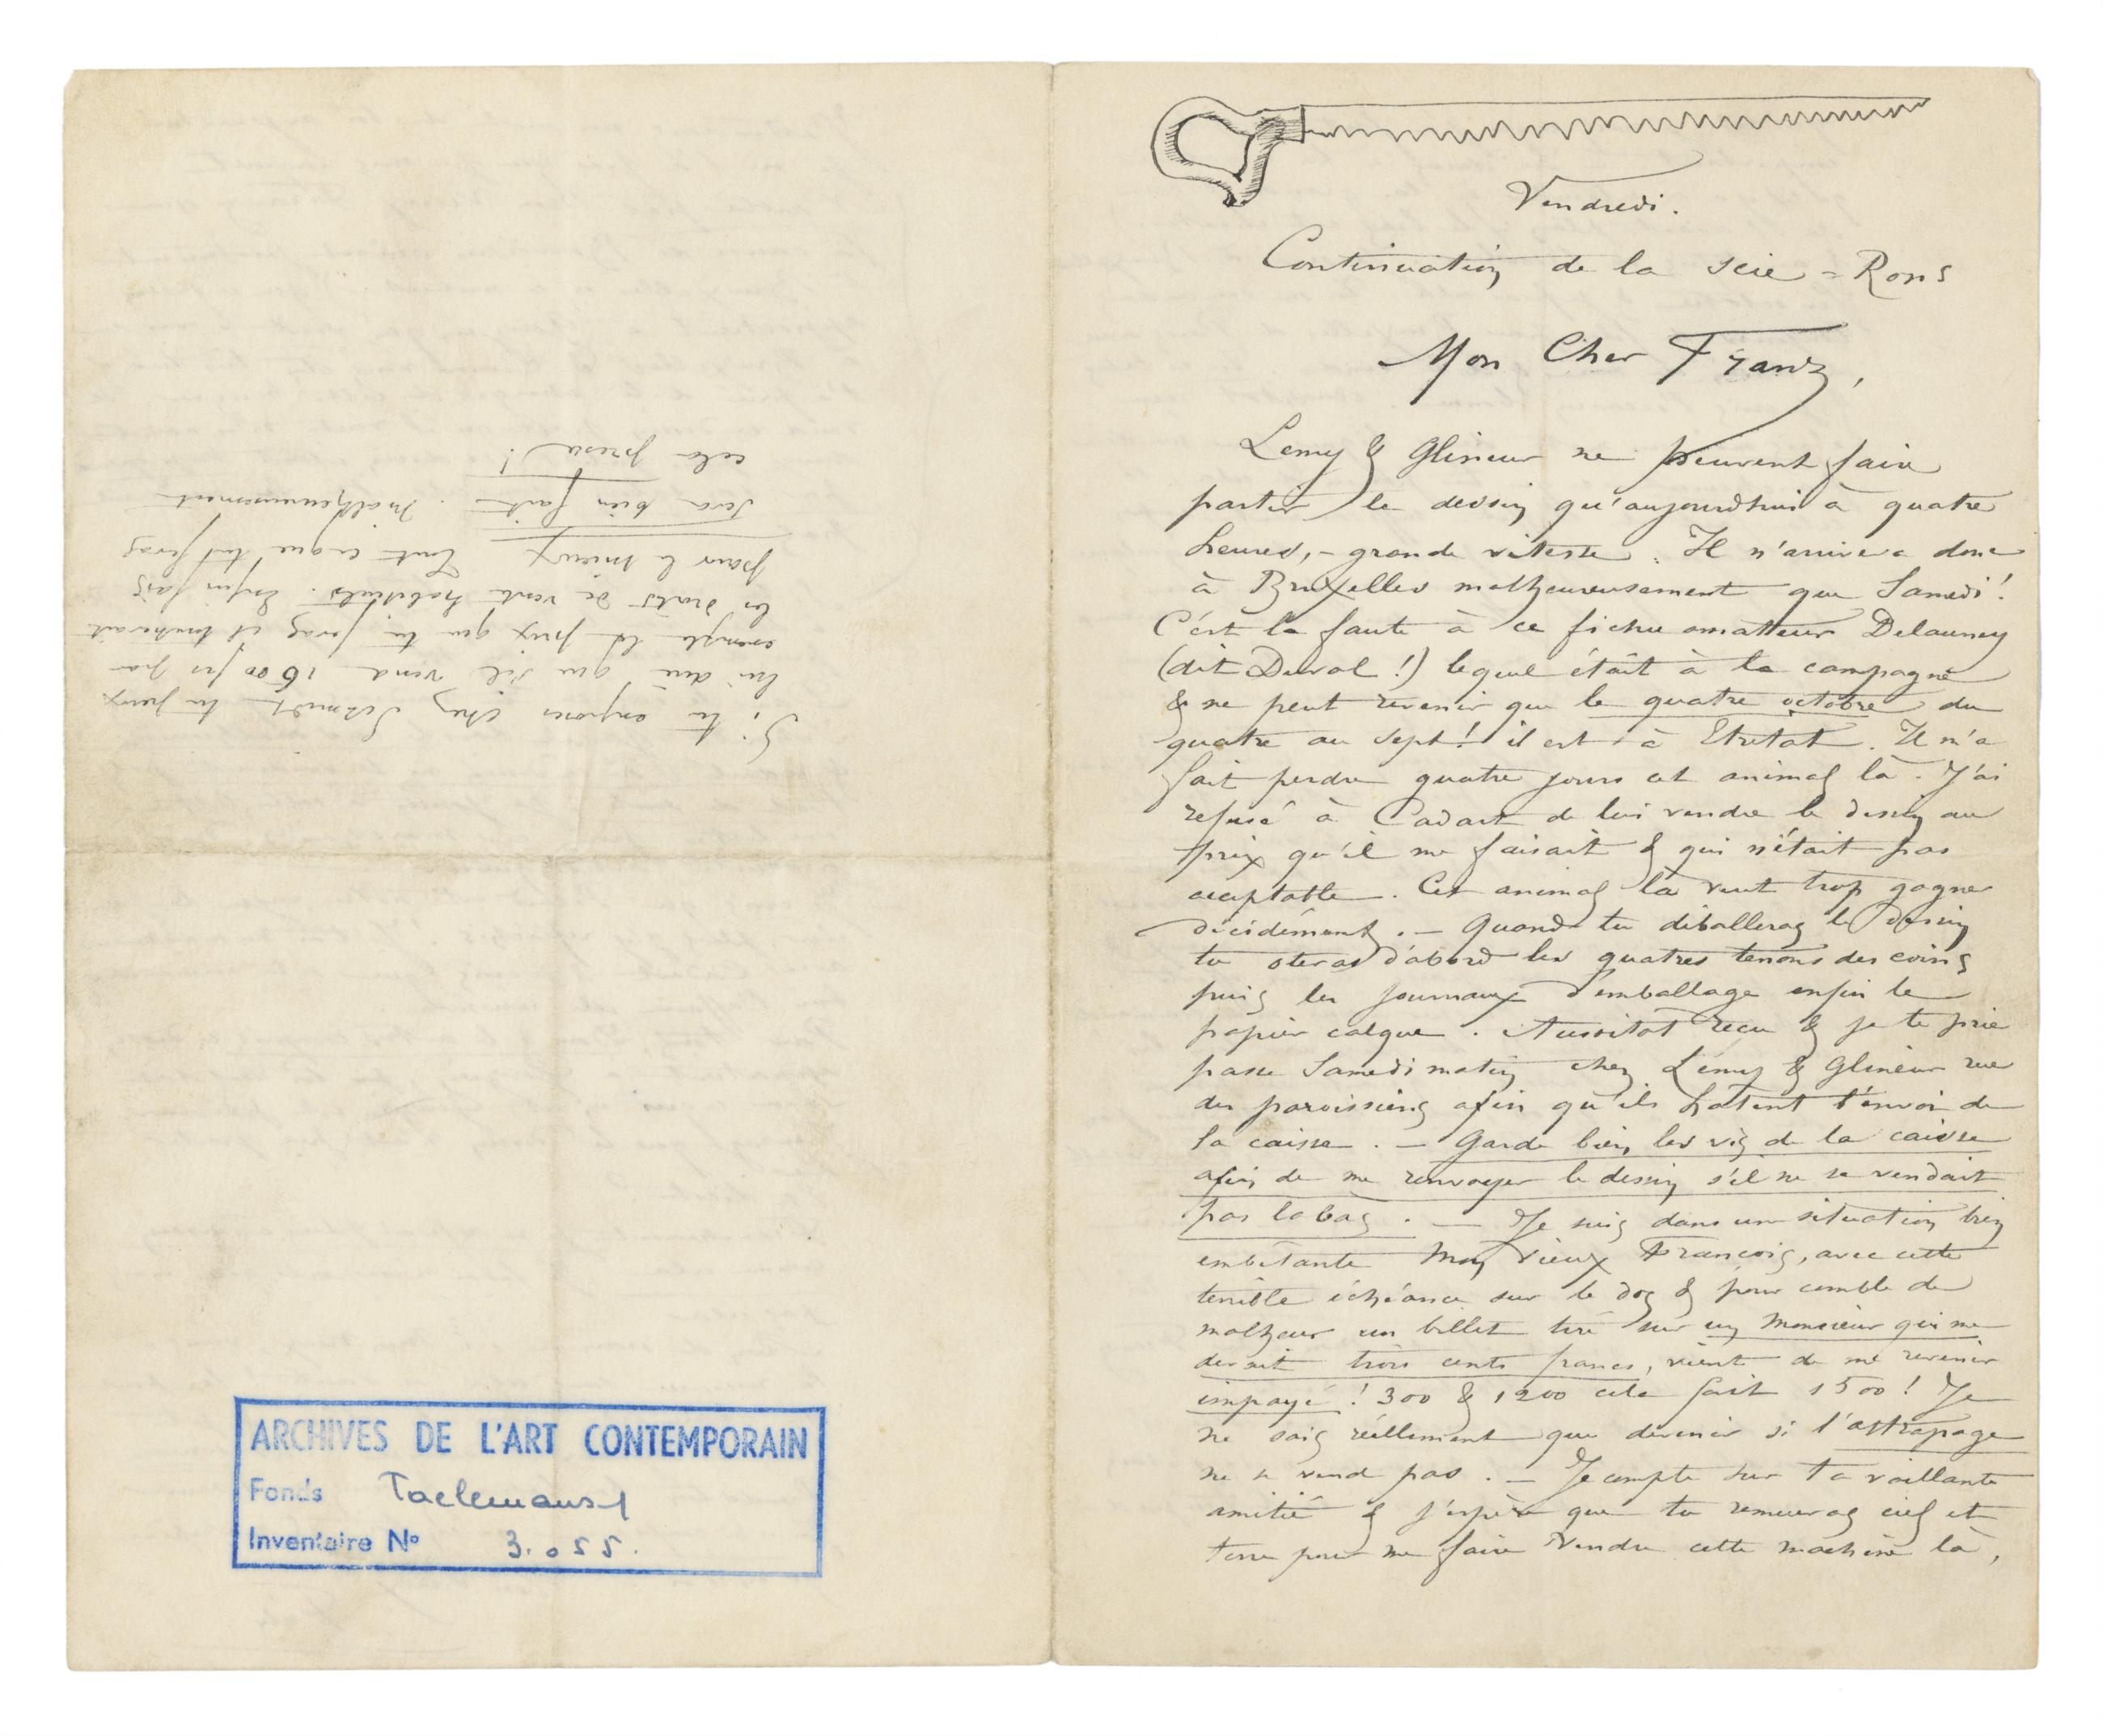 Vendredi.
Continuation de la scie = Rops
Mon Cher Franz,
Lemy & Glineur ne peuvent faire
partir le dessin qu'aujourdhui à quatre
heures, – grande vitesse. Il n'arrivera donc
à Bruxelles malheureusement que Samedi!
C'est la faute à ce fichu amateur Delauney
(dit Duval!) lequel était à la campagne
& ne peut revenir que le quatre octobre du
quatre au sept! il est à Etretat. Il m'a
fait perdre quatre jours cet animal là. J'ai
refusé à Cadart de lui vendre le dessin au
prix qu'il me faisait & qui n'était pas
acceptable. Cet animal là veut trop gagner
décidément. – Quand tu déballeras le dessin
tu oteras d'abord les quatres tenons des coins
puis les journaux d'emballage enfin le
papier calque. Aussitot recu & je te prie
passe Samedi matin chez Lemy & Glineur rue
des paroissiens afin qu'ils hatent l'envoi de
la caisse. – Garde bien les vis de la caisse
afin de me renvoyer le dessin s'il ne se vendait
pas labas. – Je suis dans un situation bien
embetante mon vieux Francois, avec cette
terrible échéance sur le dos & pour comble de
malheur un billet tiré sur un Monsieur qui me
devait trois cents francs, vient de me revenir
impayé! 300 & 1200 cela fait 1500! Je
ne sais réellement que devenir si l'attrapage
ne se vend pas. – Je compte sur ta vaillante
amitié & j'espère que tu remueras ciel et
terre pour me faire vendre cette machine là,
Si tu exposes chez Schmidt tu peux
lui dire que s'il vend 1500 frs par
exemple le prix que tu feras il toucherait
les droits de vente habituels. Enfin fais
pour le mieux tout ce que tu feras
sera bien fait. Malheureusement
cela presse!
ARCHIVES DE L'ART CONTEMPORAIN
Fonds Taelemans
Inventaire Nº 3.055.